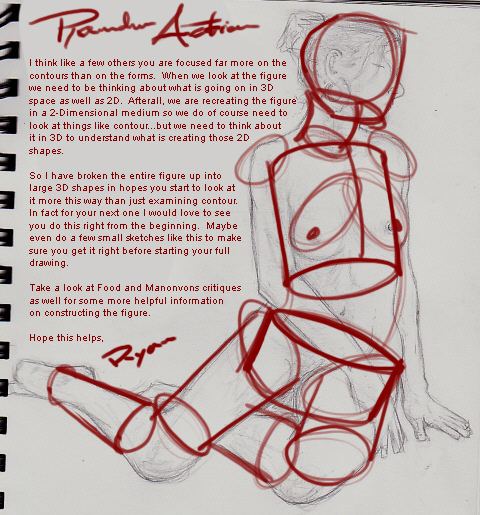 I think like a few others you are focused far more on the
contours than on the forms. When we look at the figure
we need to be thinking about what is going on in 3D
space as well as 2D. Afterall, we are recreating the figure
in a 2-Dimensional medium so we do of course need to
look at things like contour...but we need to think about
it in 3D to understand what is creating those 2D
shapes.
So I have broken the entire figure up into
large 3D shapes in hopes you start to look at
it more this way than just examining contour.
In fact for your next one I would love to see
you do this right from the beginning. Maybe
even do a few small sketches like this to make
sure you get it right before starting your full
drawing.
Take a look at Food and Manonvons critiques
as well for some more helpful information
on constructing the figure.
Hope this helps,
Ryan